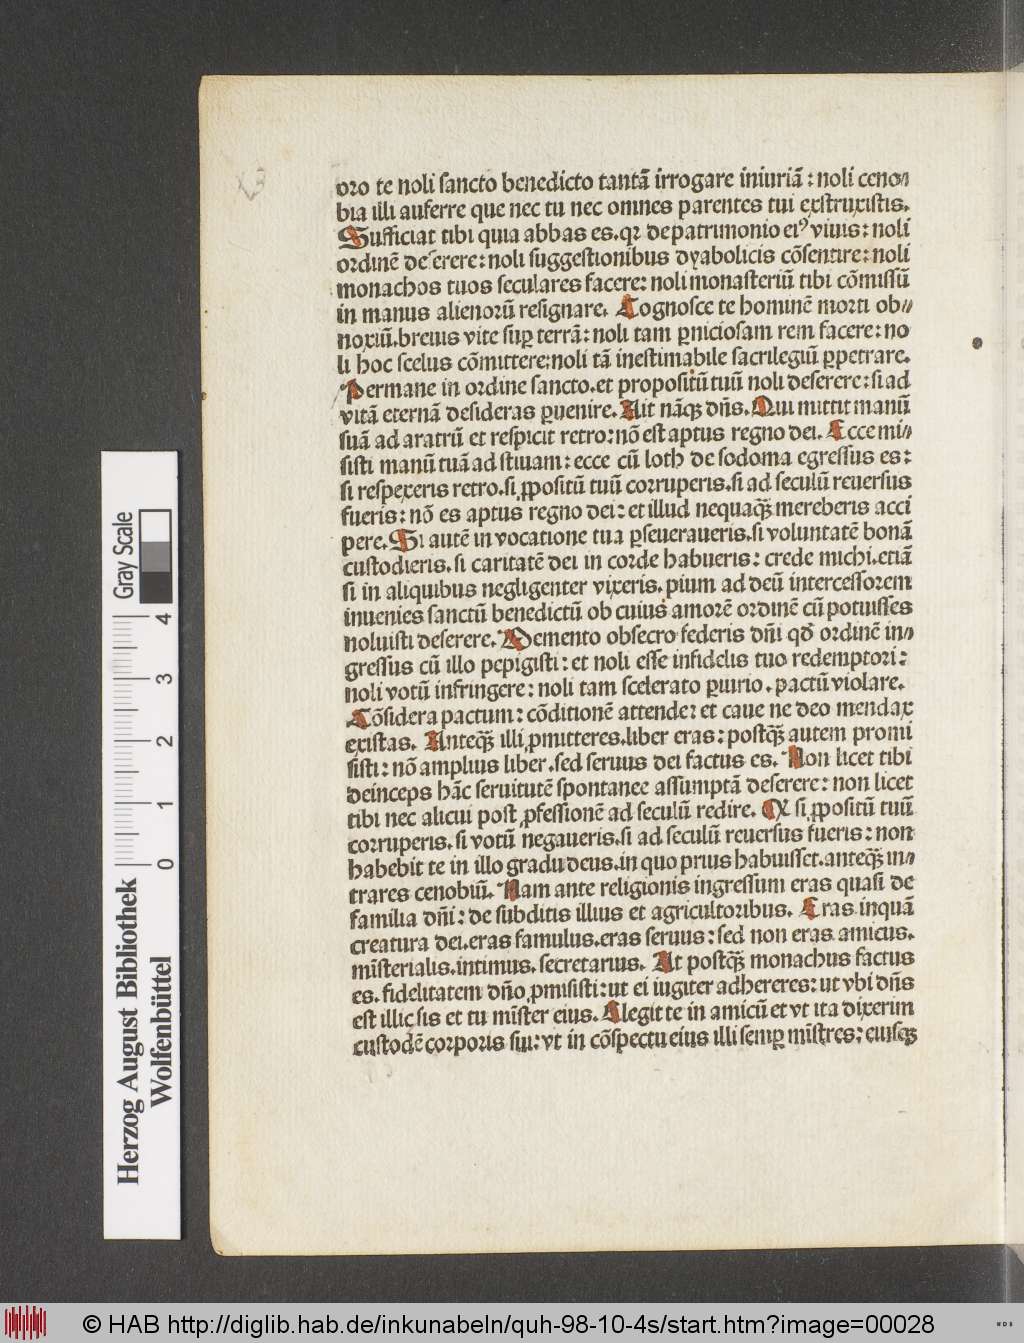 oro te noli sancto benedicto tantã irrogare iniuriã: noli ceno⸗
bia illi auferre que nec tu nec omnes parentes tui exstruxistis.
Sufficiat tibi quia abbas es.qꝛ de patrimonio eiꝰ viuis: noli
ordinẽ deserere: noli suggestionibus dyabolicis cõsentire: noli
monachos tuos seculares facere: noli monasteriũ tibi cõmissũ
in manus alienorũ resignare. Cognosce te hominẽ morti ob⸗
noxiũ.breuis vite suꝑ terrã: noli tam ꝑniciosam rem facere: no
li hoc scelus cõmittere: noli tã inestimabile sacrilegiũ ꝑpetrare.
Permane in ordine sancto.et propositũ tuũ noli deserere: si ad
vitã eternã desideras ꝑuenire. Ait nãqꝫ dñs. Qui mittit manũ
suã ad aratrũ et respicit retro: nõ est aptus regno dei. Ecce mi⸗
sisti manũ tuã ad stiuam: ecce cũ loth de sodoma egressus es:
si respexeris retro.si ꝓpositũ tuũ corruperis.si ad seculũ reuersus
fueris: nõ es aptus regno dei: et illud nequaqꝫ̃ mereberis acci
pere. Si autẽ in vocatione tua ꝑseueraueris.si voluntatẽ bonã
custodieris.si caritatẽ dei in corde habueris: crede michi.etiã
si in aliquibus negligenter vixeris.pium ad deũ intercessorem
inuenies sanctũ benedictũ ob cuius amorẽ ordinẽ cũ potuisses
noluisti deserere. Memento obsecro federis dñi qđ ordinẽ in⸗
gressus cũ illo pepigisti: et noli esse infidelis tuo redemptori:
noli votũ infringere: noli tam scelerato ꝑiurio.pactũ violare.
Cõsidera pactum: cõditionẽ attende: et caue ne deo mendax
existas. Anteqꝫ̃ illi ꝓmitteres.liber eras: postqꝫ̃ autem promi
sisti: nõ amplius liber.sed seruus dei factus es. Non licet tibi
deinceps hãc seruitutẽ spontanee assumptã deserere: non licet
tibi nec alicui post ꝓfessionẽ ad seculũ redire. Qꝫ si ꝓpositũ tuũ
corruperis.si votũ negaueris.si ad seculũ reuersus fueris: non
habebit te in illo gradu deus.in quo prius habuisset.anteqꝫ̃ in⸗
trares cenobiũ. Nam ante religionis ingressum eras quasi de
familia dñi: de subditis illius et agricultoribus. Eras inquã
creatura dei.eras famulus.eras seruus: sed non eras amicus.
mĩsterialis.intimus.secretarius. At postqꝫ̃ monachus factus
es.fidelitatem dño ꝓmisisti: ut ei iugiter adhereres: ut vbi dñs
est illic sis et tu mĩster eius. Elegit te in amicũ et vt ita dixerim
custodẽ corporis sui: vt in cõspectu eius illi semꝑ mĩstres: eiusqꝫ
Gray Scale
4
3
2
1
0
Herzog August Bibliothek
Wolfenbüttel
© HAB http://diglib.hab.de/inkunabeln/quh-98-10-4s/start.htm?image=00028
WDB